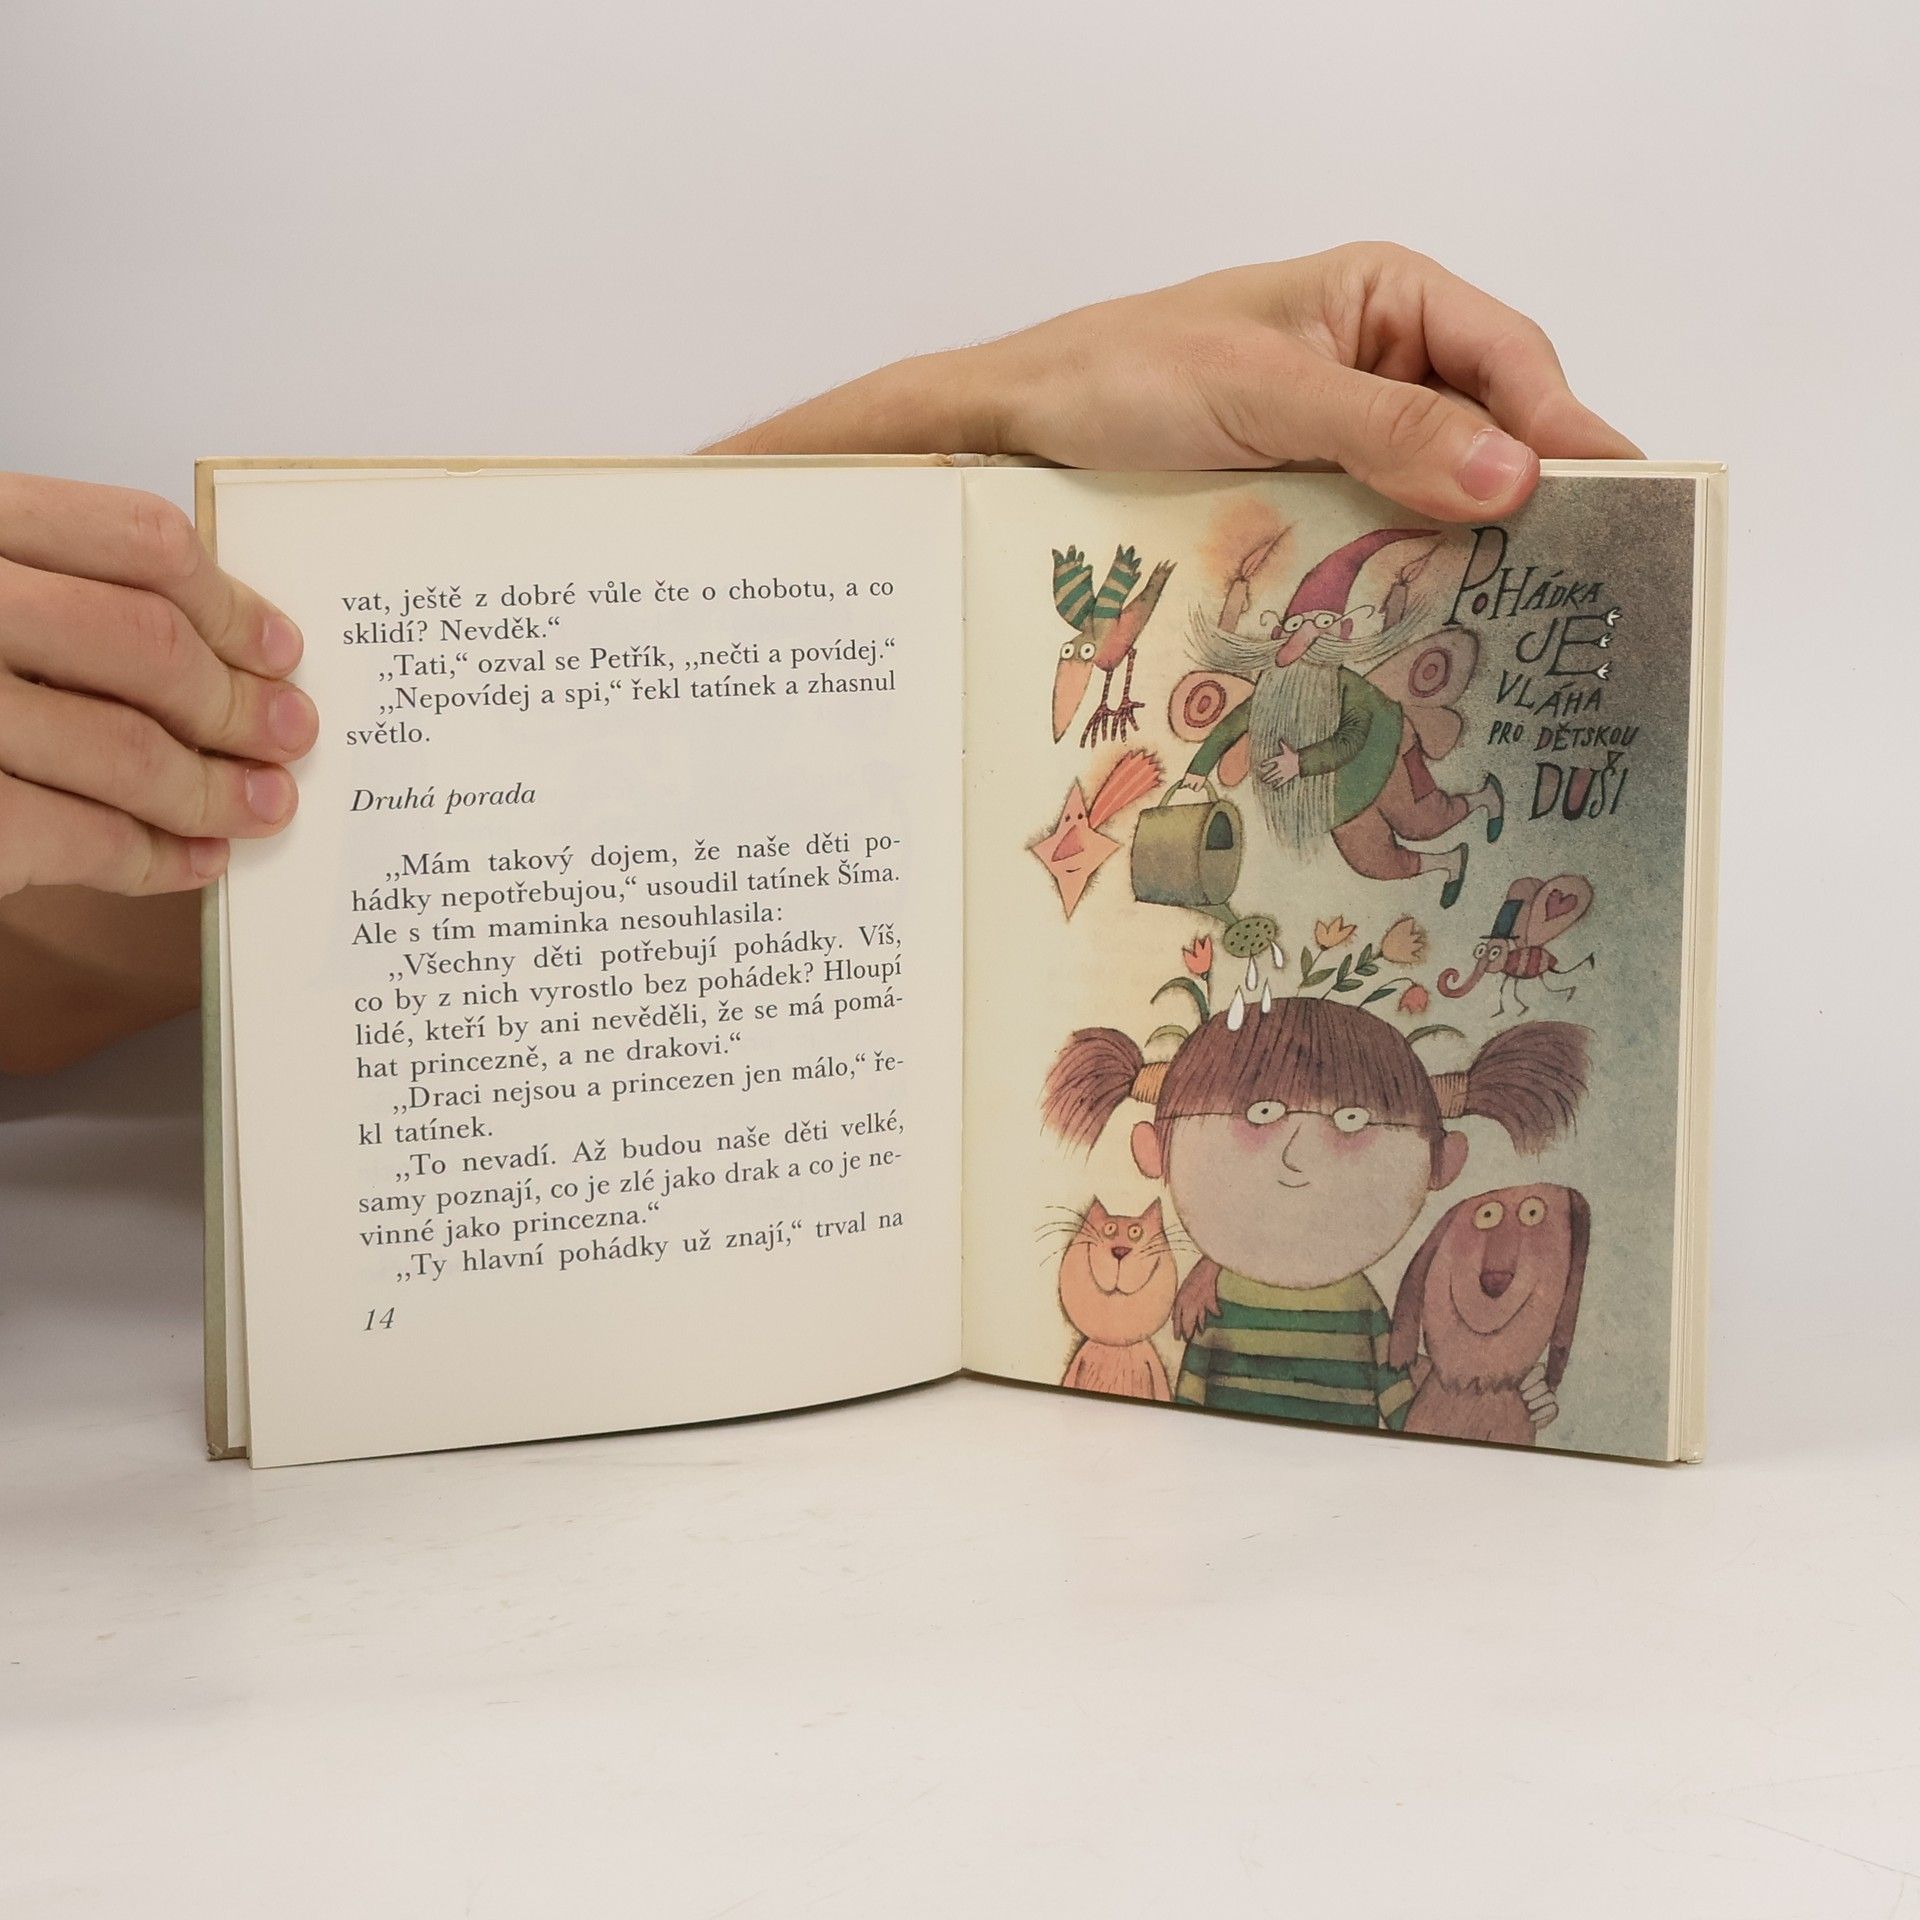 vat, ještě z dobré vůle čte o chobotu, a co
sklidí? Nevděk.“
,,Tati,“ ozval se Petřík, ,,nečti a povídej.“
,,Nepovídej a spi,“ řekl tatínek a zhasnul
světlo.
Druhá porada
,,Mám takový dojem, že naše děti po-
hádky nepotřebujou,“ usoudil tatínek Šíma.
Ale s tím maminka nesouhlasila:
,,Všechny děti potřebují pohádky. Víš,
co by z nich vyrostlo bez pohádek? Hloupí
lidé, kteří by ani nevěděli, že se má pomá-
hat princezně, a ne drakovi.“
,,Draci nejsou a princezen jen málo,“ ře-
kl tatínek.
,,To nevadí. Až budou naše děti velké,
samy poznají, co je zlé jako drak a co je ne-
vinné jako princezna.“
,,Ty hlavní pohádky už znají,“ trval na
14
POHÁDKA
JE
VLÁHA
PRO DĚTSKOU
DUŠI